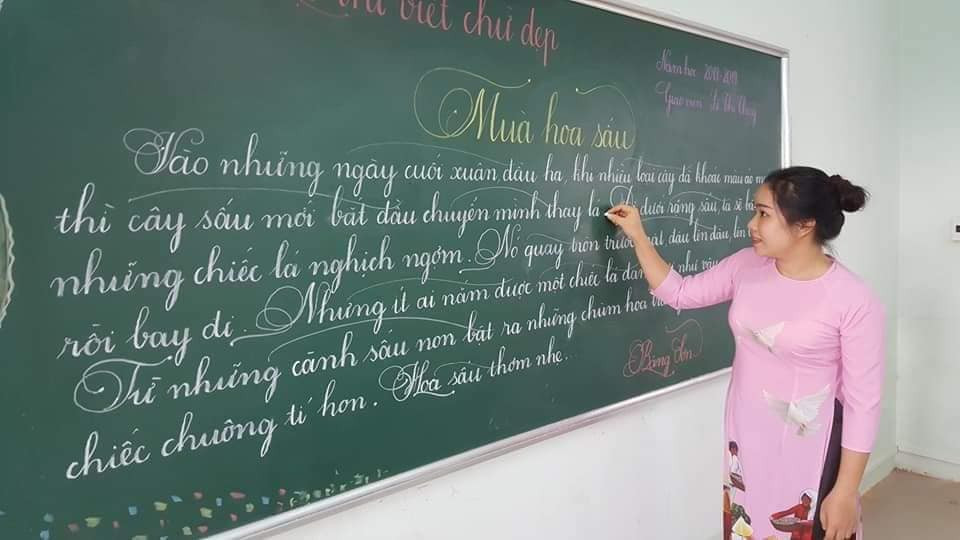 thi viết chữ đẹp
Năm học
Giáo viên
Mùa hoa sấu
Vào những ngày cuối xuân, đầu hạ, khi nhiều loài cây đã khoác màu áo
thì cây sấu mới bắt đầu chuyển mình thay lá dưới rặng sấu, ta sẽ
những chiếc lá nghịch ngợm. Nó quay tròn trước mặt, đậu lên đầu, lên
rồi bay đi. Nhưng ít ai nắm được một chiếc lá như vậy
Từ những cành sấu non bật ra những chùm hoa
chiếc chuông tí hon. Hoa sấu thơm nhẹ...
Băng Sơn